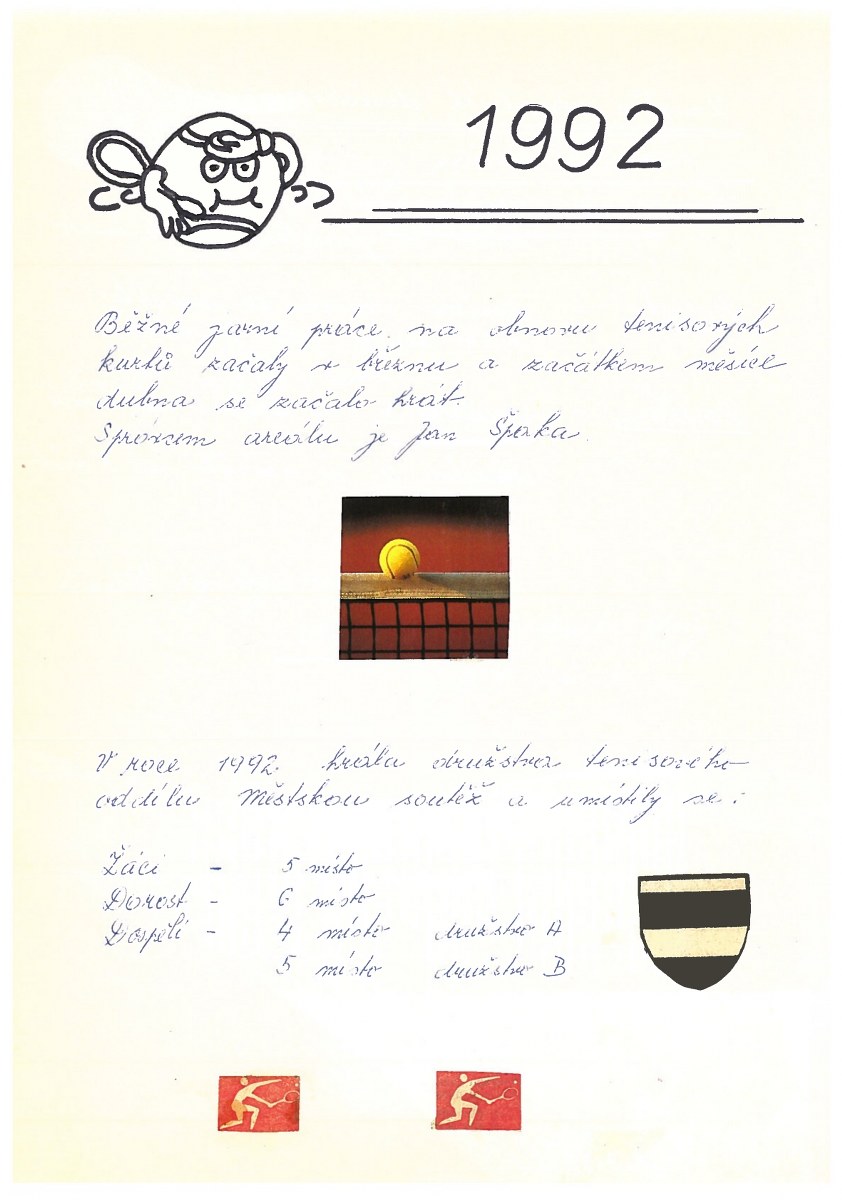 1992
Běžné jarní práce na obnovu tenisových
kurtů začaly v březnu a začátkem měsíce
dubna se začalo hrát.
Správcem areálu je Jan Špaka.
V roce 1992 hrála družstva tenisového
oddílu Městskou soutěž a umístily se:
Žáci - 5 místo
Dorost - 6 místo
Dospělí - 4 místo družstvo A
5 místo družstvo B